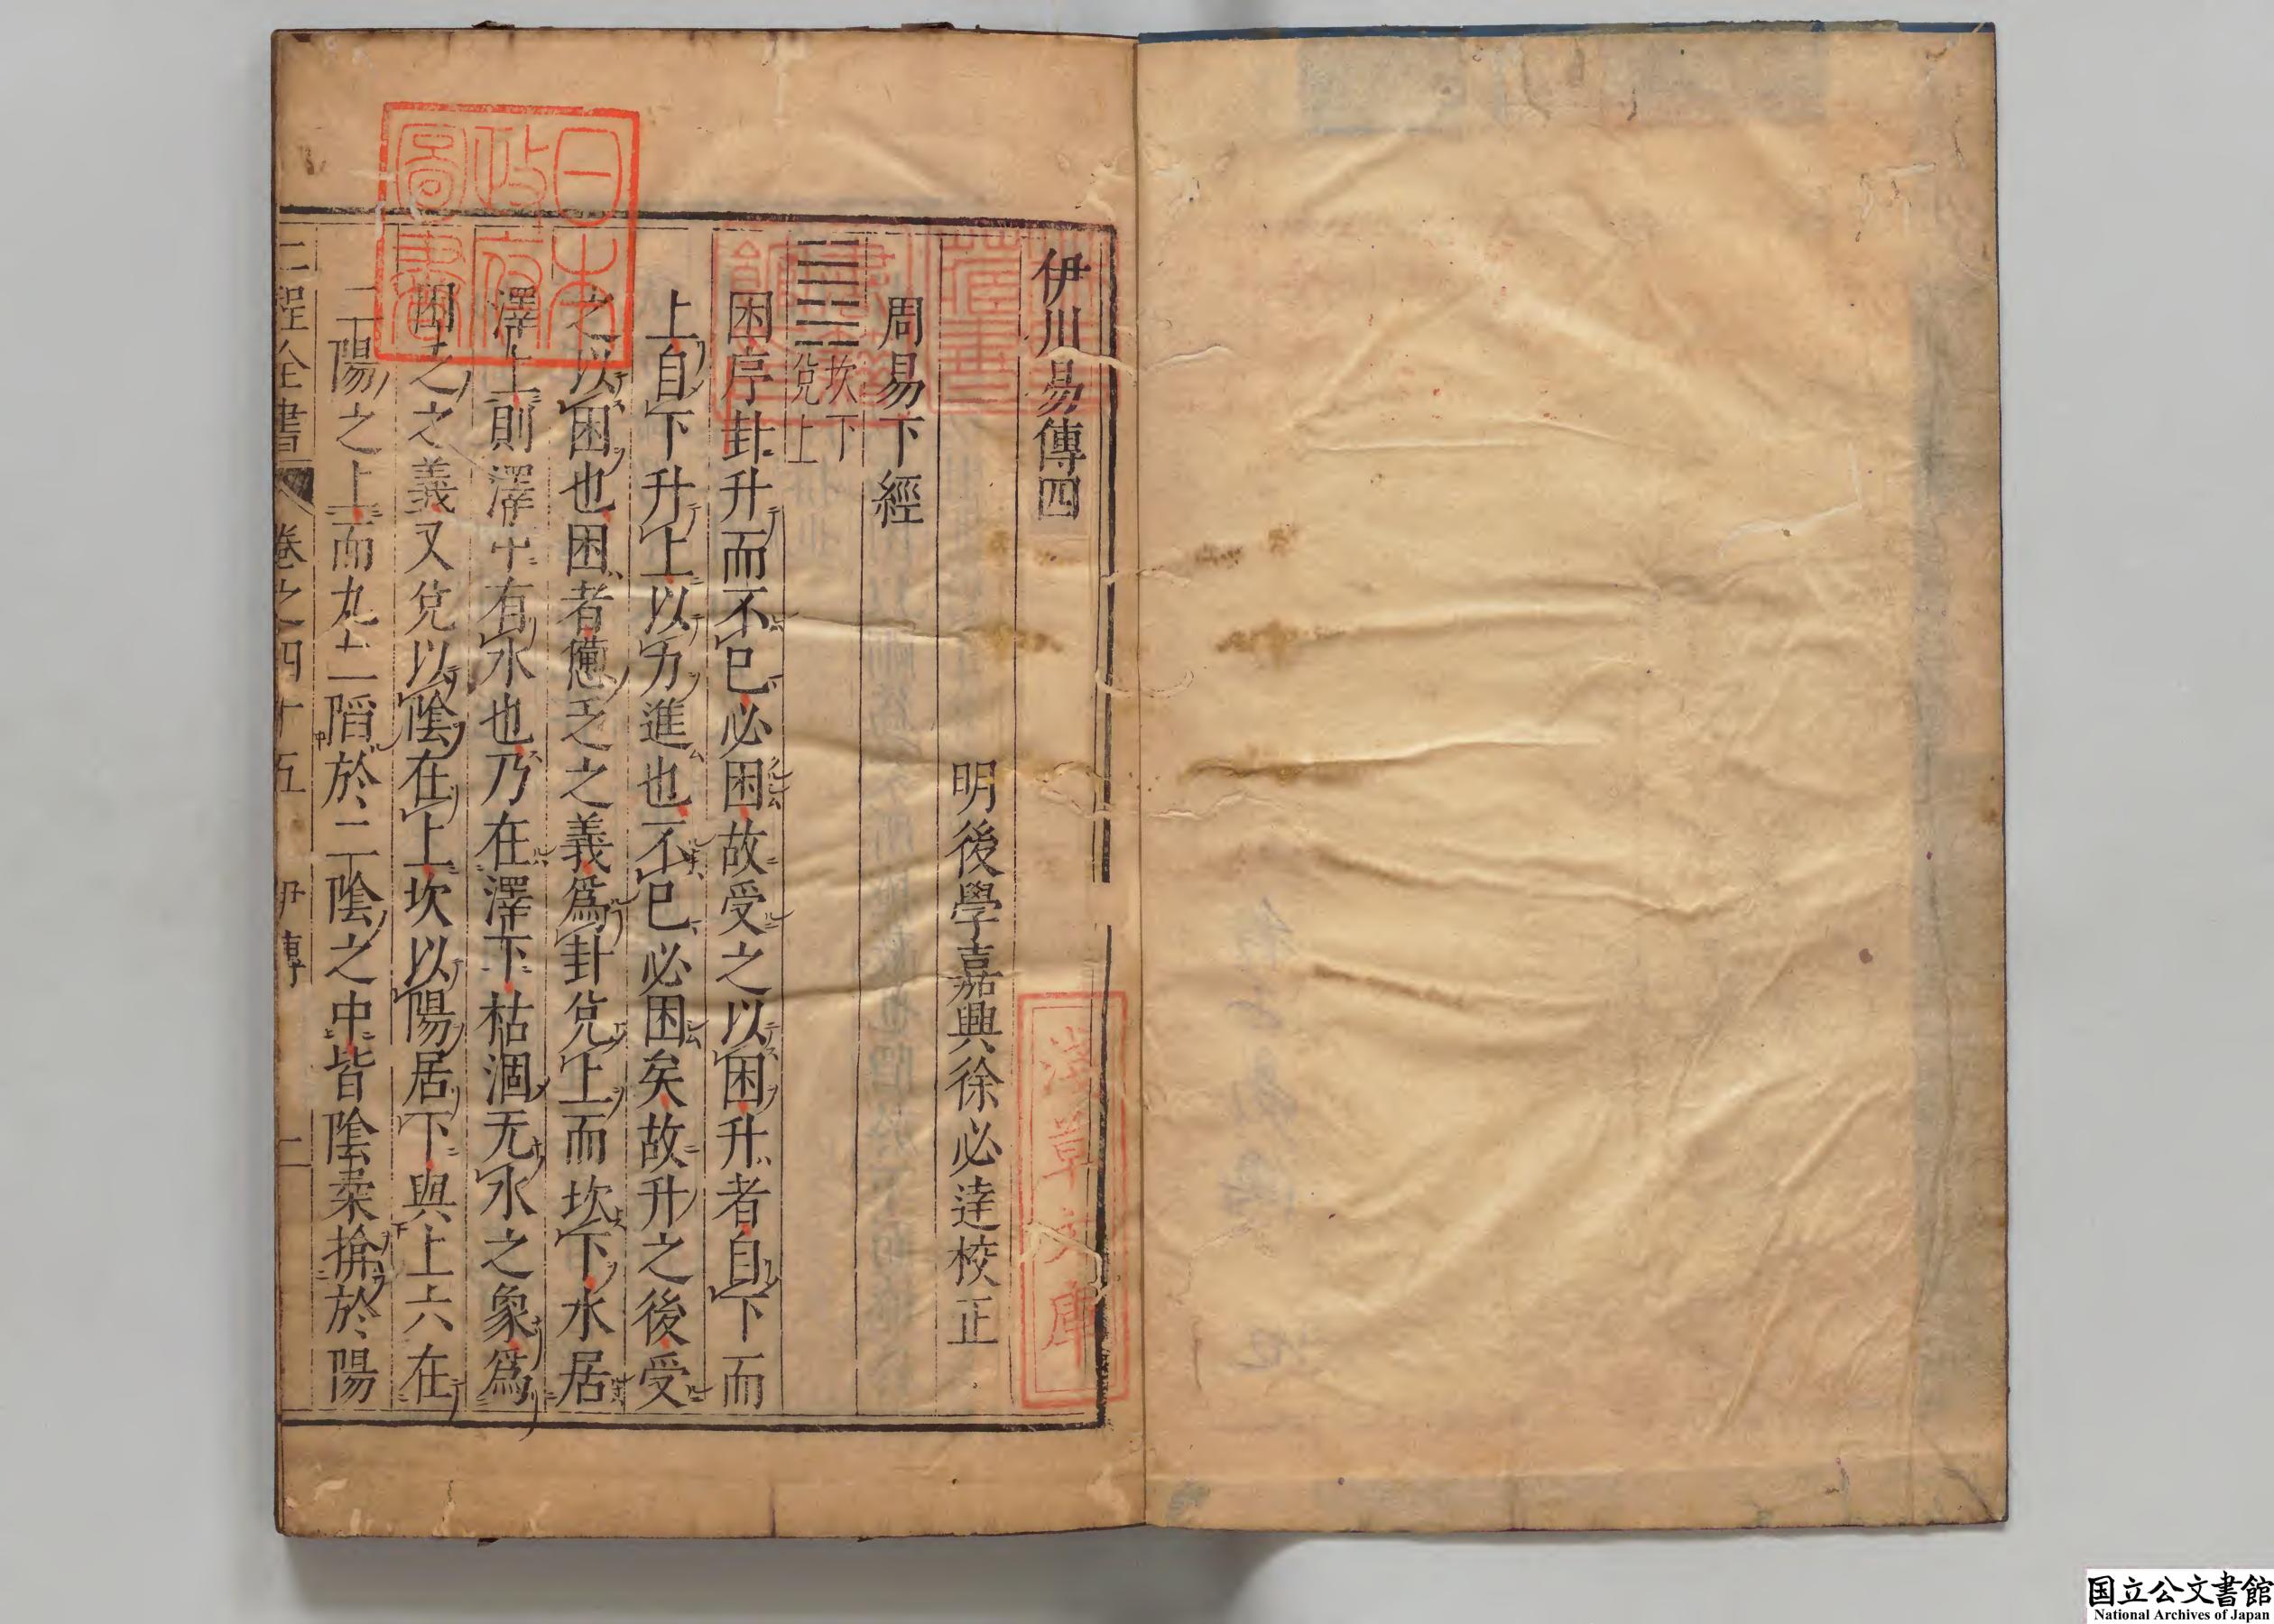 伊川易傳四
明後學嘉興徐必達校正
周易下經
䷮坎下兌上
困序卦升而不已必困故受之以困升者自下而
上自下升上以力進也不已必困矣故升之後受
之以困也困者憊乏之義爲卦兌上而坎下水居
澤上則澤中有水也乃在澤下枯涸无水之象爲
困乏之義又兌以陰在上坎以陽居下與上六在
二陽之上而九二陷於二陰之中皆陰柔揜於陽
二程全書 卷之四十五 伊傳 一
日本政府圖書
淺草文庫
国立公文書館
National Archives of Japan